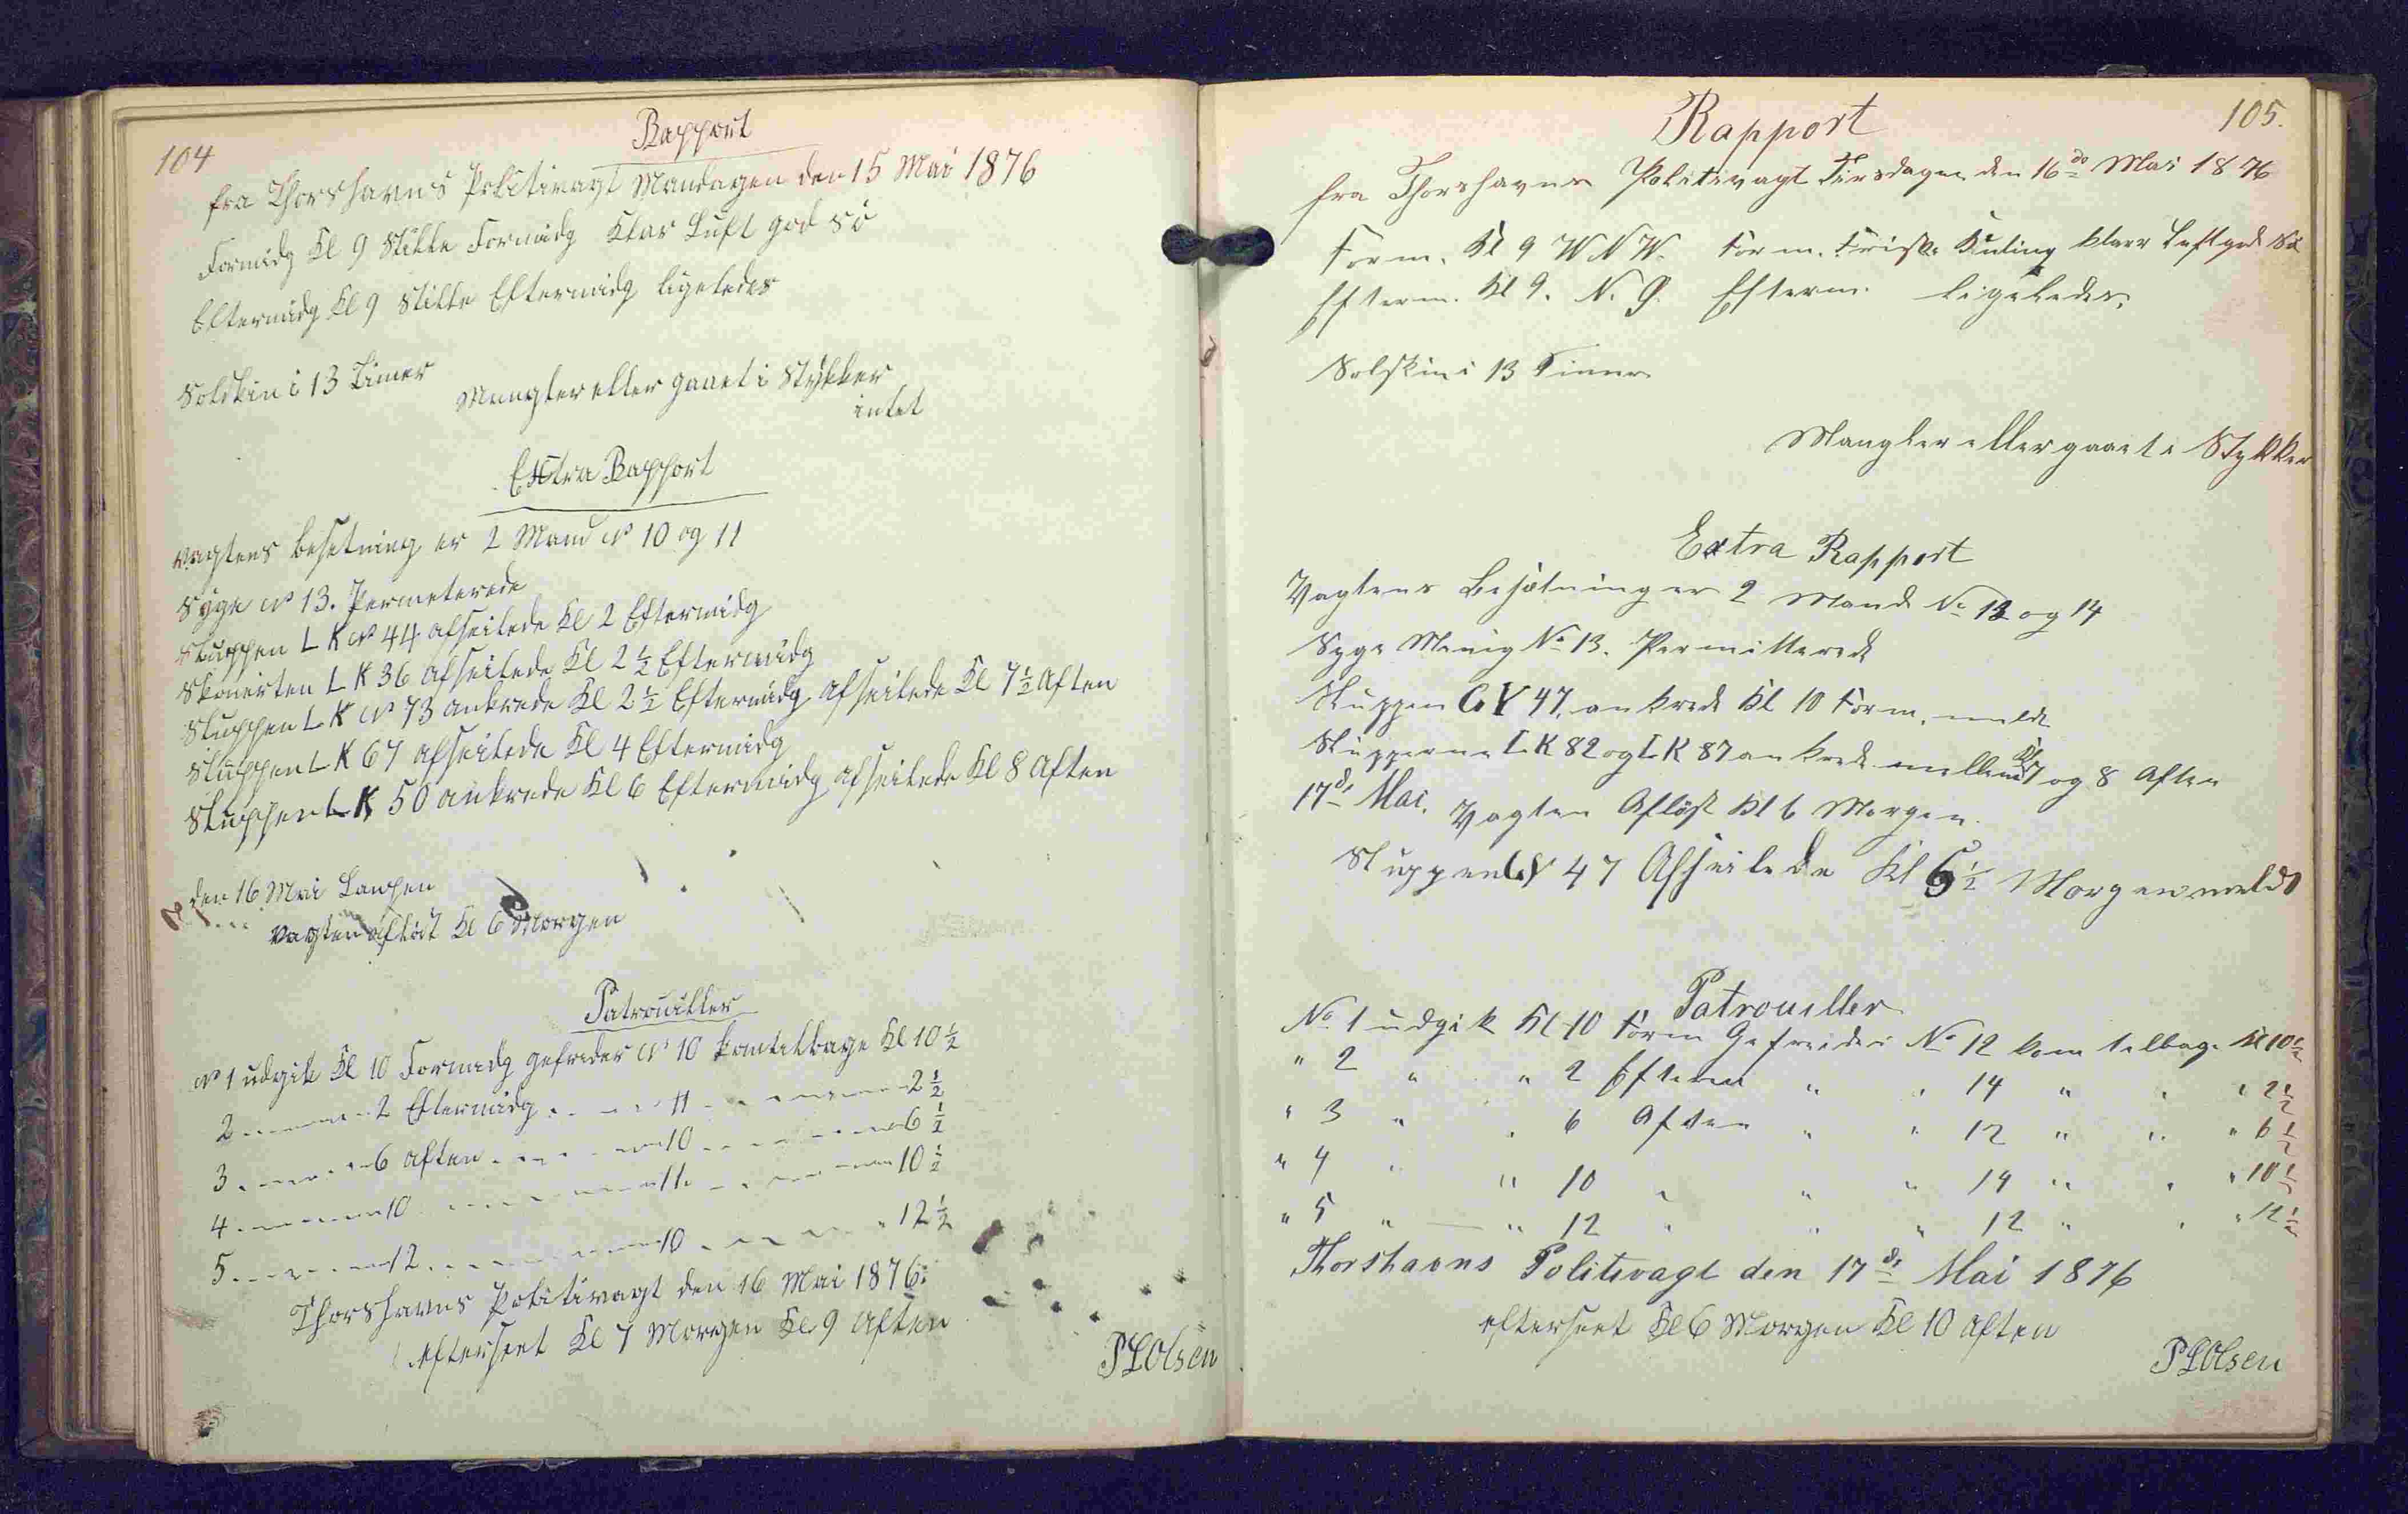 104
Rapport
fra Thorshavns Politivagt Mandagen den 15 Mai 1876
Formidg Kl 9 Stille Formidg Klar Luft god Sö
Eftermidg Kl 9 Stille Eftermidg ligeledes
Solskin i 13 Timer
Mangler eller gaaet i Stykker
intet
Extra Rapport
Vagtens besetning er 2 Mand No 10 og 11
Syge No 13. Permeterede
Sluppen L K No 44 afseilede Kl 2 Eftermidg
Skonerten L K 36 afseilede Kl 2 1/2 Eftermidg
Sluppen L K No 73 ankrede Kl 2 1/2 Eftermidg afseilede Kl 7 1/2 Aften
Sluppen L K 67 afseilede Kl 4 Eftermidg
Sluppen L K 50 ankrede Kl 6 Eftermidg afseilede Kl 8 Aften
den 16 Mai
Vagten aflöst Kl 6 Morgen
Patrouiller
No 1 udgik Kl 10 Formidg gefreider No 10 kom tilbage Kl 10 1/2
2 - - - - 2 Eftermidg - - - - 11 - - - - 2 1/2
3 - - - - 6 aften - - - - 10 - - - - 6 1/2
4 - - - - 10 - - - - 11 - - - - 10 1/2
5 - - - - 12 - - - - 10 - - - - 12 1/2
Thorshavns Politivagt den 16 Mai 1876
efterseet Kl 7 Morgen Kl 9 Aften
PLOlsen
105.
Rapport
fra Thorshavns Politivagt Tirsdagen den 16de Mai 1876
Form. Kl 9 W N W. Form. Friske Kuling klar Luft god Sö
Efterm. Kl 9. N. O. Efterm. ligeledes.
Solskin i 13 Timer
Mangler eller gaaet i Stykker
Extra Rapport
Vagtens Besætning er 2 Mand No 12 og 14
Syge Menig No 13. Permitterede
Sluppen G V 47, ankrede Kl 10 Form. meldt
Slupperne L K 82 og L K 87 ankrede mellem Kl 7 og 8 Aften
17de Mai. Vagten Aflöst Kl 6 Morgen.
Sluppen G V 47 Afseilede Kl 6 1/2 Morgen meldt
Patrouiller
No 1 udgik Kl 10 Form Gefreider No 12 kom tilbage Kl 10 1/2
" 2 " " 2 Efterm " " 14 " " " 2 1/2
" 3 " " 6 Aften " " 12 " " " 6 1/2
" 4 " " 10 " " " 14 " " " 10 1/2
" 5 " " 12 " " " 12 " " " 12 1/2
Thorshavns Politivagt den 17de Mai 1876
efterseet Kl 6 Morgen Kl 10 Aften
PLOlsen